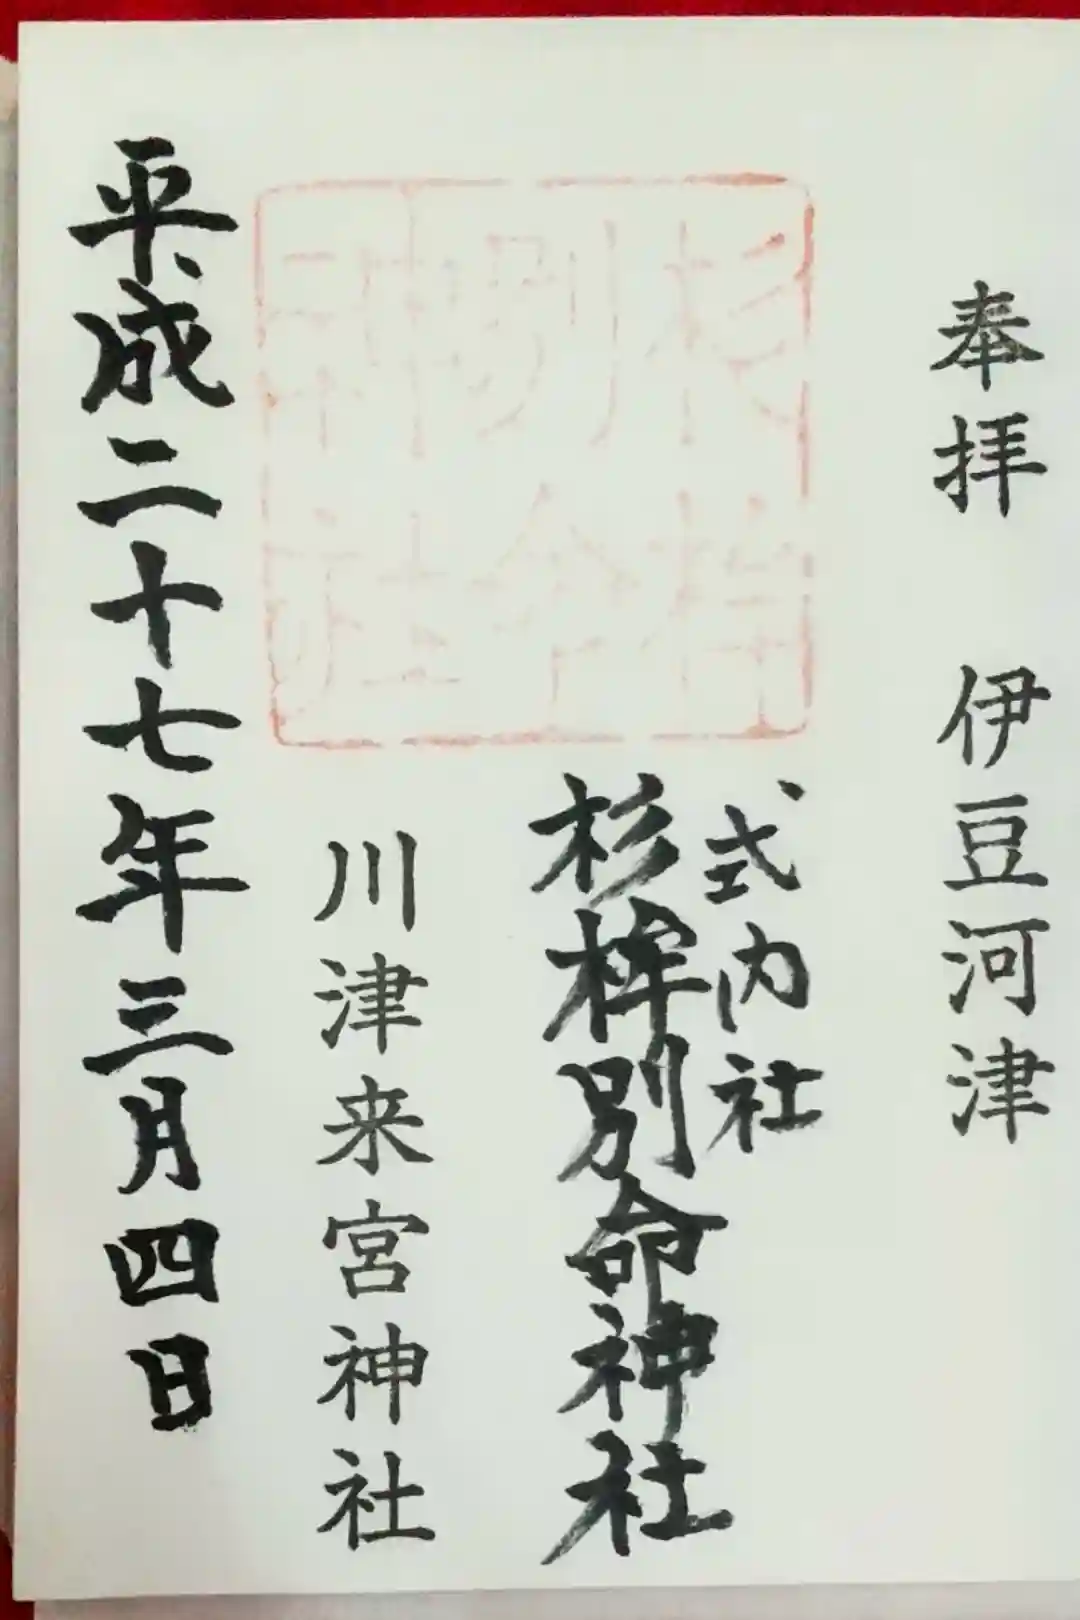 奉拝　伊豆河津
式内社
杉桙別命神社
杉桙
別命
神社
川津来宮神社
平成二十七年三月四日